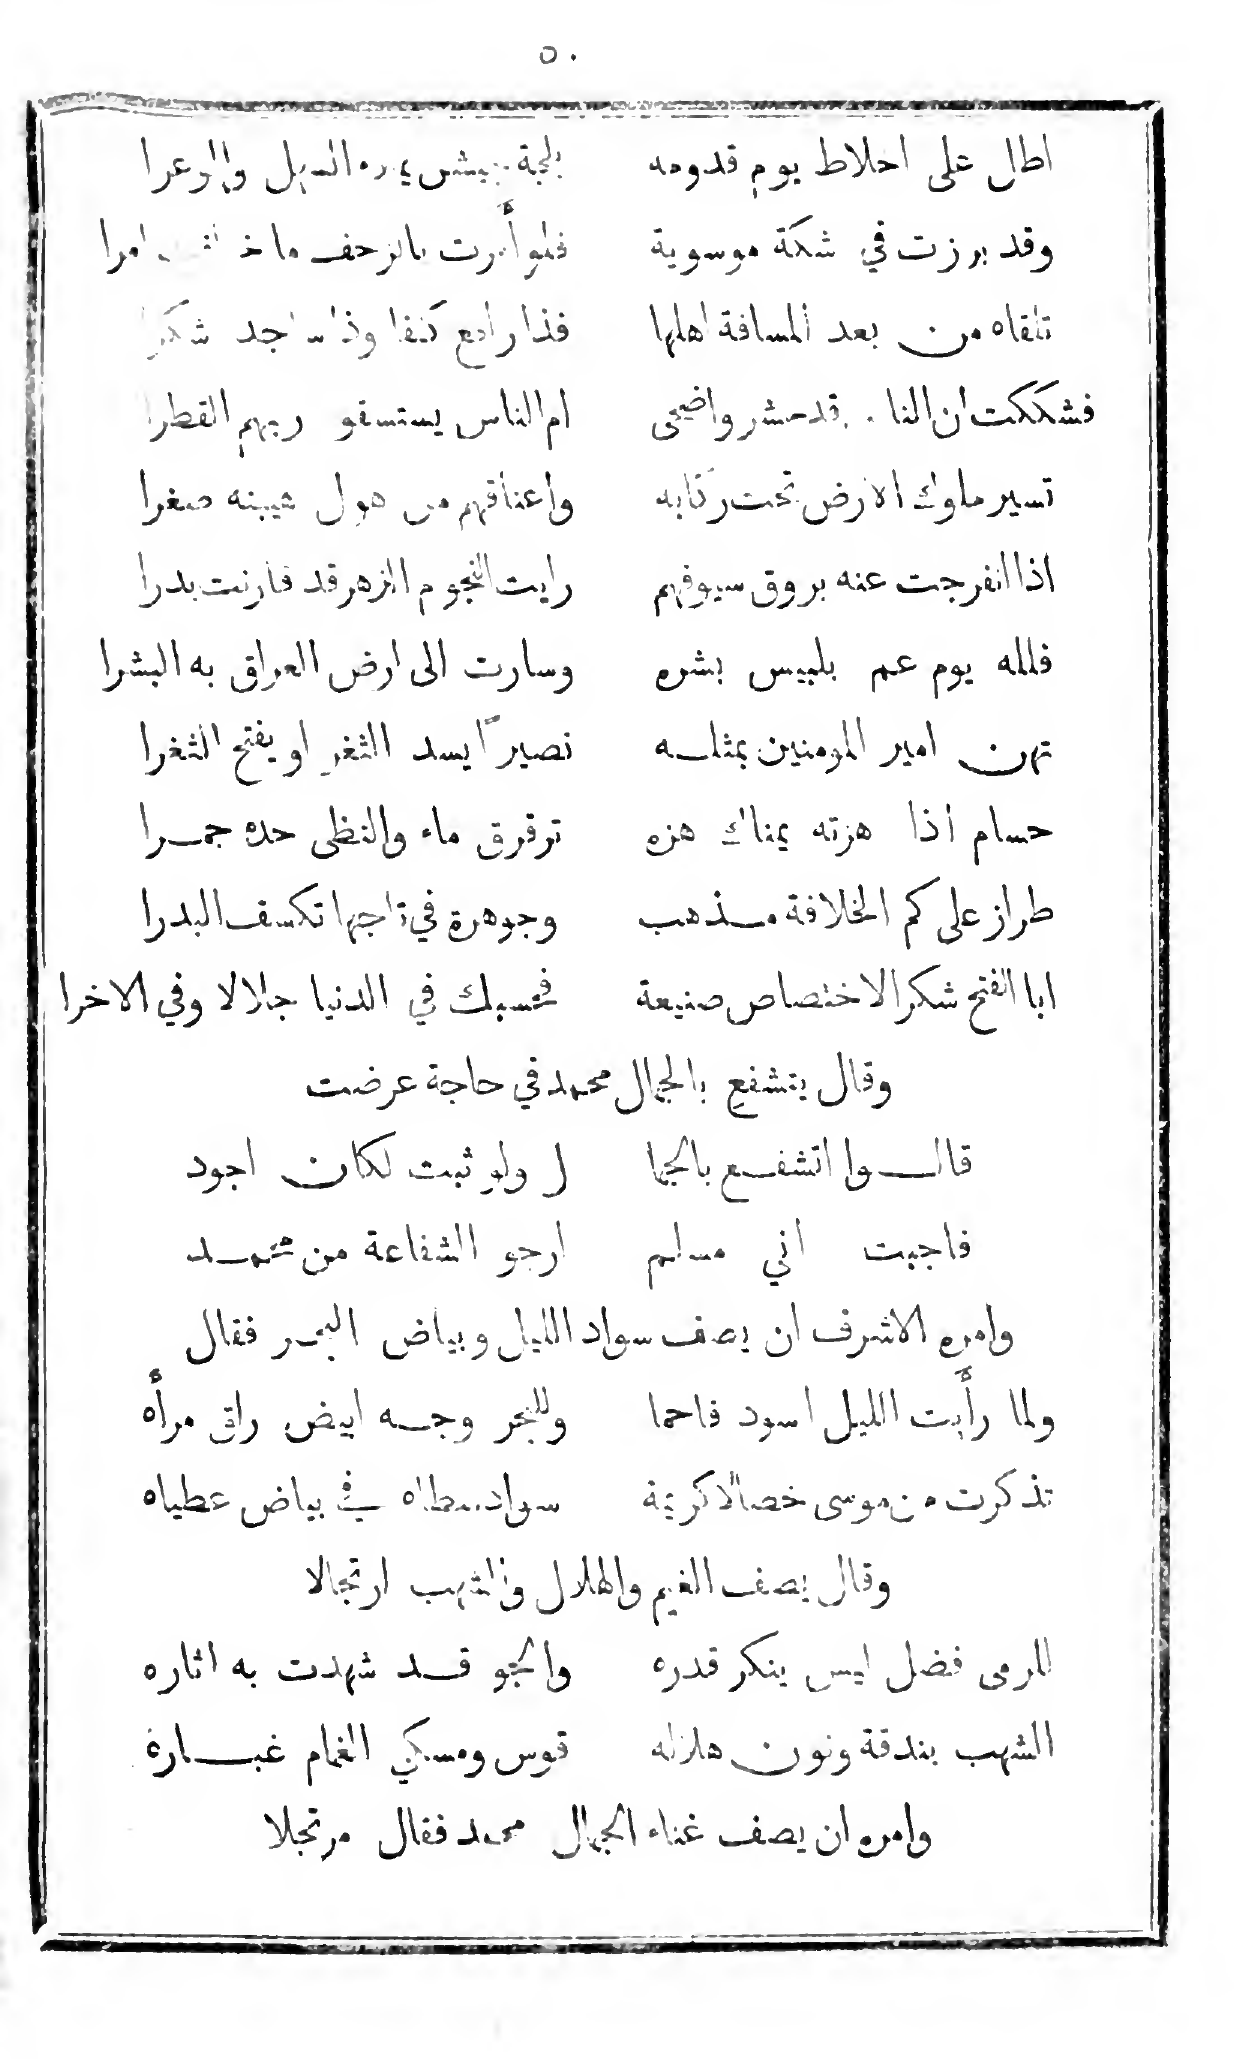 ٥٠
اطال على اخلاط يوم قدومه بلجة جيش السهل والوعرا
وقد برزت في شكة موسوية فلو أمرت بالزحف ما امرا
تلقاه من بعد المسافة اهلها فذا رافع كفا وذا ساجد شكرا
فشككت ان النا قد حشر واضحى ام الناس يستسقو ربهم القطرا
تسير ملوك الارض تحت ركابه واعناقهم من هول هيبته صغرا
اذا انفرجت عنه بروق سيوفهم رايت النجوم الزهر قد قارنت بدرا
فلله يوم عم بلبيس بشره وسارت الى ارض العراق به البشرا
تهن امير المومنين بمثله نصيرًا يسد الثغر او يفتح الثغرا
حسام اذا هزته يمناك هزه ترقرق ماء والتظى حده جمرا
طراز على كم الخلافة مذهب وجوهرة في تاجها تكسف البدرا
ابا الفتح شكرا لاختصاص صنيعة فحسبك في الدنيا جلالا وفي الاخرا
وقال يتشفع بالجمال محمد في حاجة عرضت
قالوا اتشفع بالجما ل ولو ثبت لكان اجود
فاجبت اني مسلم ارجو الشفاعة من محمد
وامره الاشرف ان يصف سواد الليل وبياض الفجر فقال
ولما رأيت الليل اسود فاحما وللفجر وجه ابيض راق مرأه
تذكرت من موسى خصالا كريمة سواد سطاه في بياض عطياه
وقال يصف الغيم والهلال والشهب ارتجالا
للرمى فضل ليس ينكر قدره والجو قد شهدت به اثاره
الشهب بندقة ونون هلاله قوس ومسكي الغمام غباره
وامره ان يصف غناء الجمال محمد فقال مرتجلا